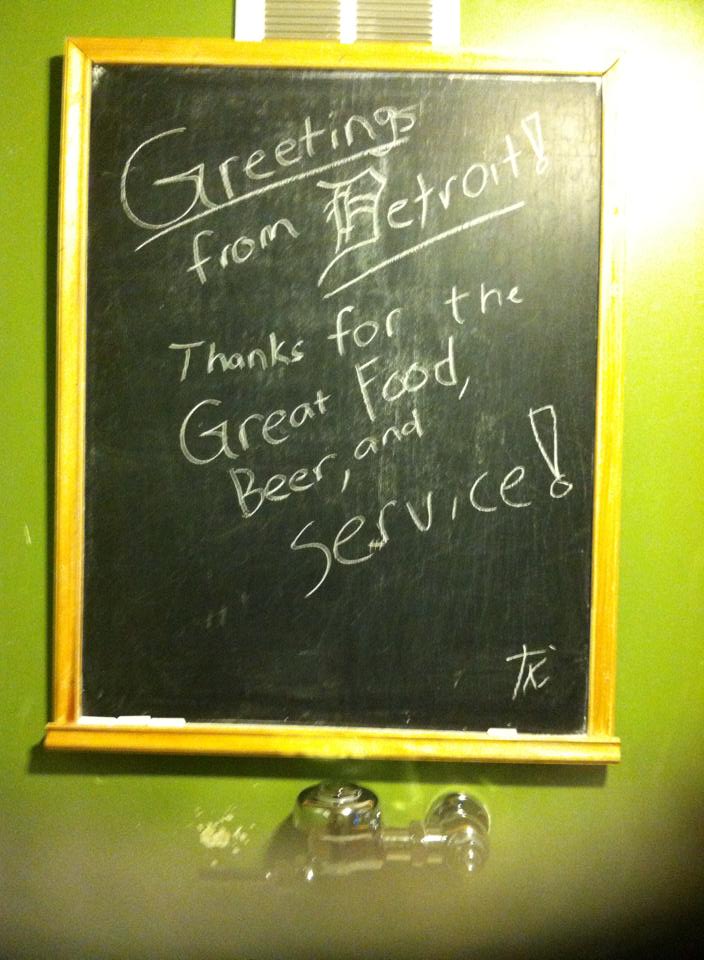 Greetings
from Detroit!
Thanks for the
Great Food,
Beer, and
Service!